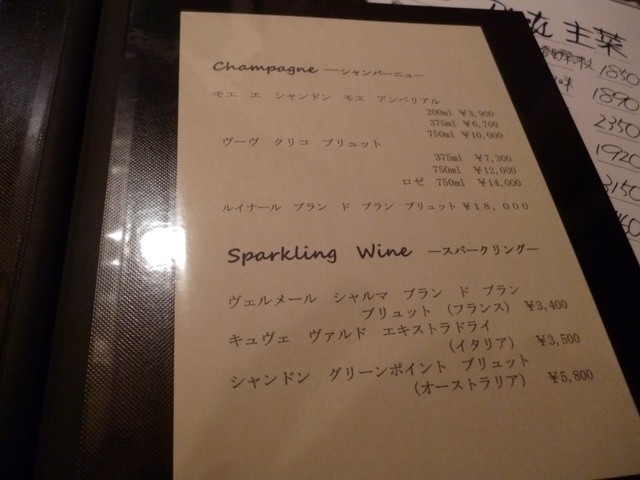 Champagne ―シャンパーニュ―
モエ エ シャンドン モエ アンペリアル
200ml ￥3,900
375ml ￥6,700
750ml ￥10,000
ヴーヴ クリコ ブリュット
375ml ￥7,300
750ml ￥12,000
ロゼ 750ml ￥14,000
ルイナール ブラン ド ブラン ブリュット ￥18,000
Sparkling Wine ―スパークリング―
ヴェルメール シャルマ ブラン ド ブラン
ブリュット (フランス) ￥3,400
キュヴェ ヴァルド エキストラドライ
(イタリア) ￥3,500
シャンドン グリーンポイント ブリュット
(オーストラリア) ￥5,800
主菜
1830
1890
2350
1920
3150